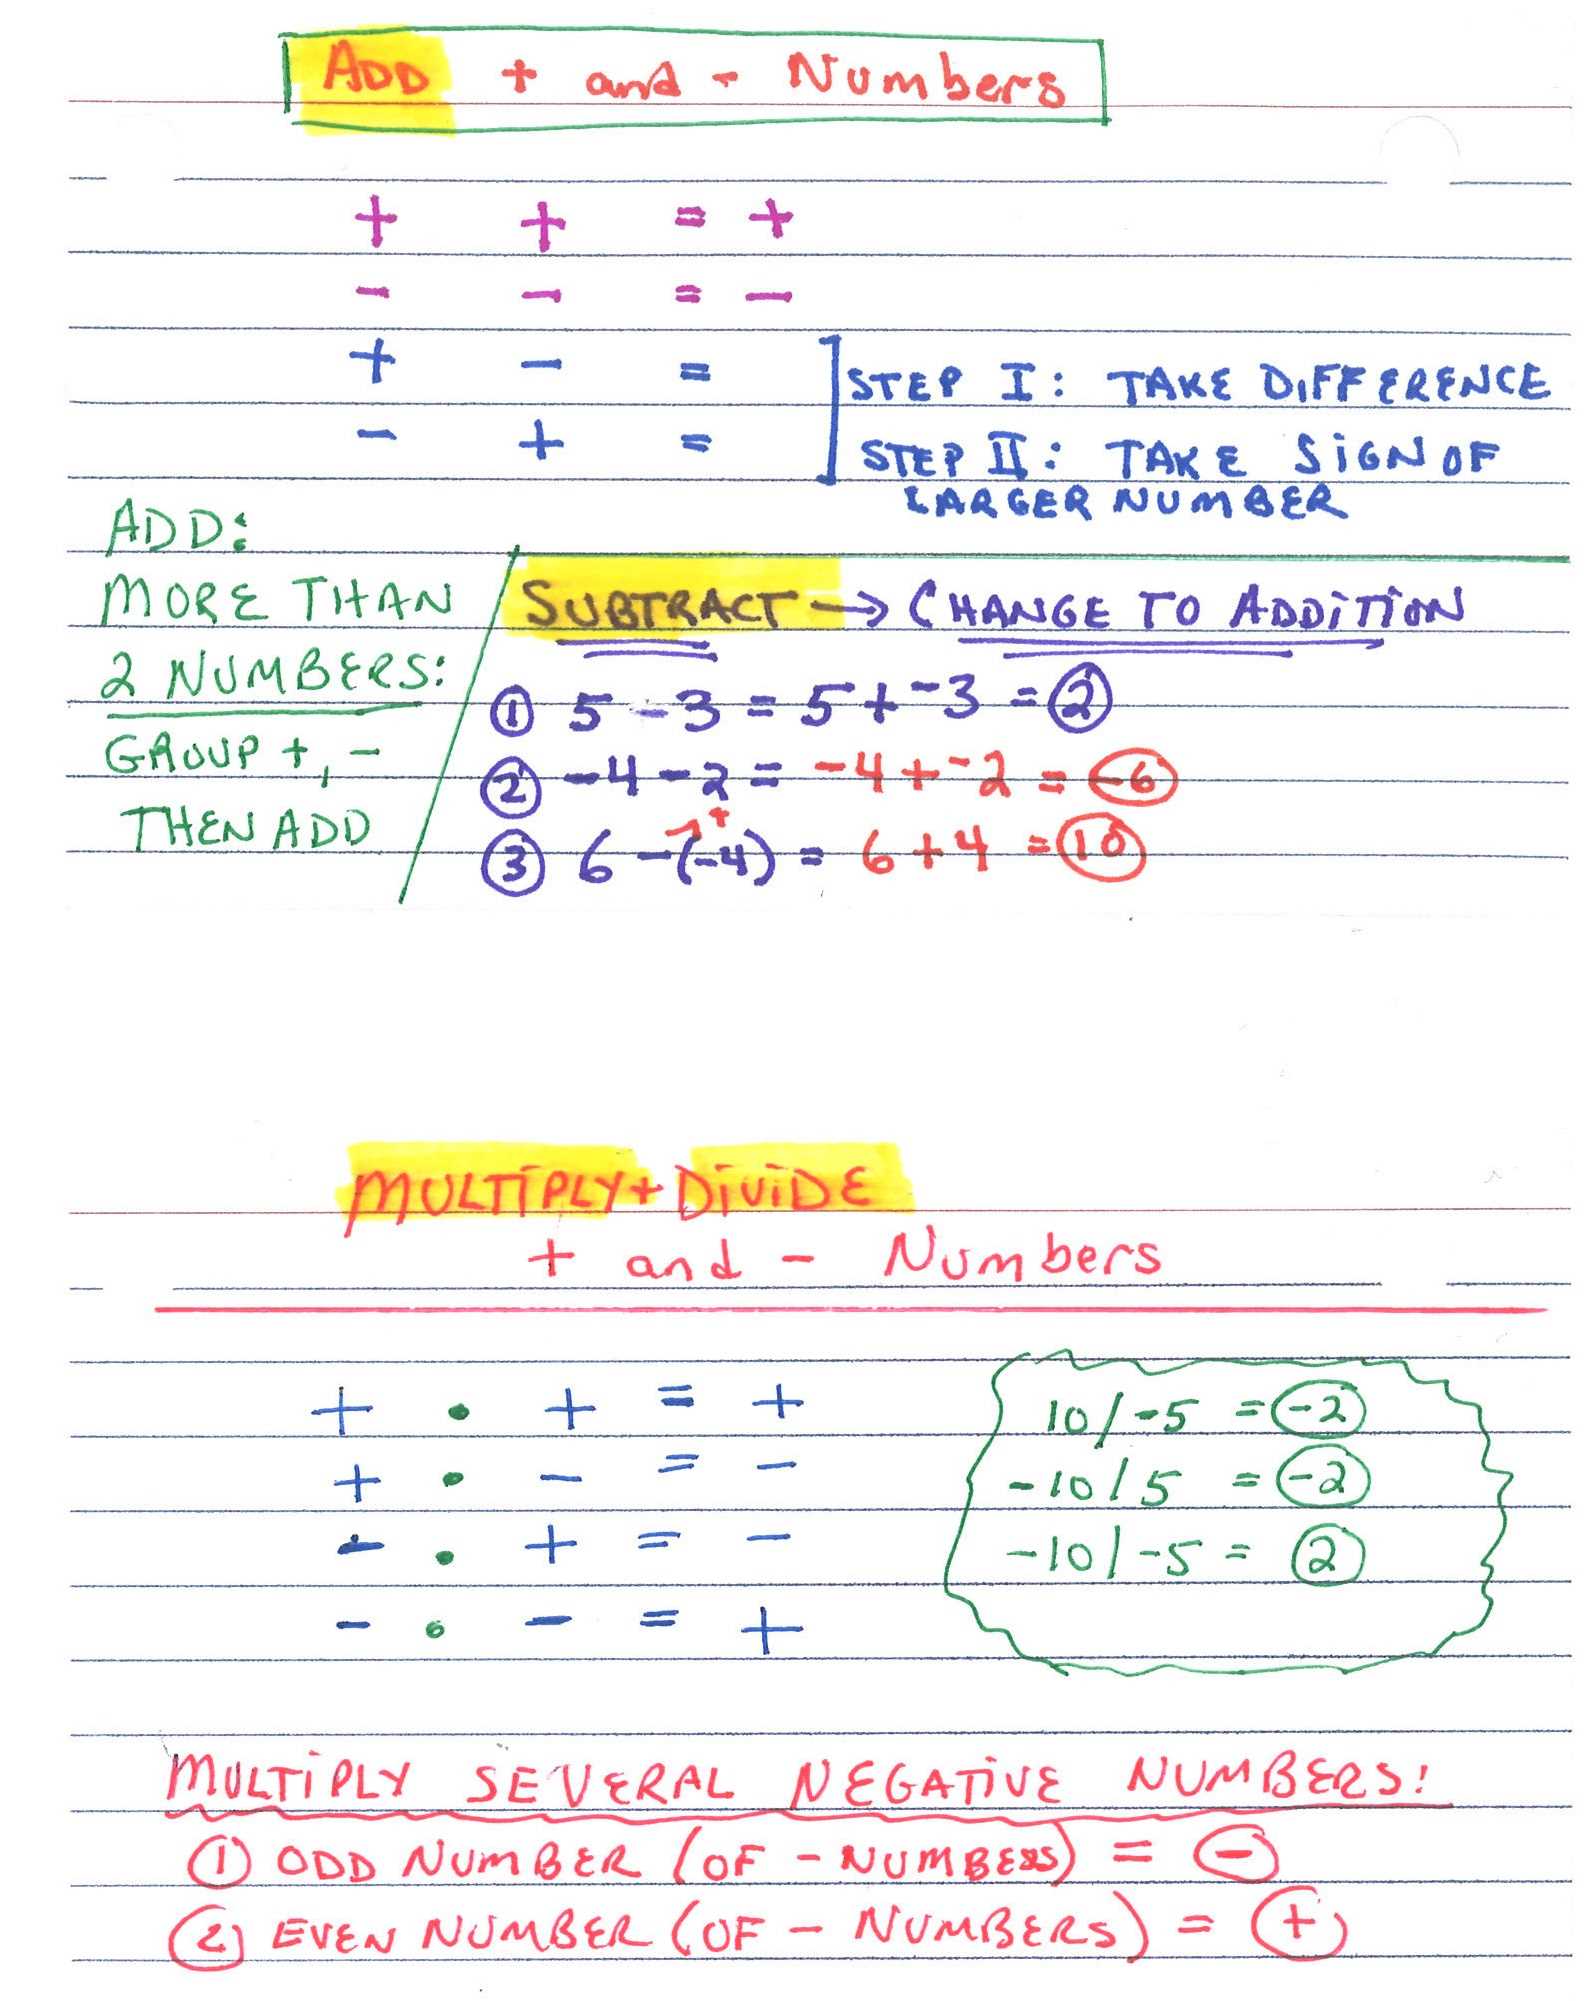 ADD + and - Numbers
+ + = +
- - = -
+ - =
- + =
STEP I: TAKE DIFFERENCE
STEP II: TAKE SIGN OF
LARGER NUMBER
ADD:
MORE THAN
2 NUMBERS:
GROUP +, -
THEN ADD
SUBTRACT → CHANGE TO ADDITION
① 5 - 3 = 5 + -3 = 2
② -4 - 2 = -4 + -2 = -6
+
③ 6 - (-4) = 6 + 4 = 10
MULTIPLY + DIVIDE
+ and - Numbers
+ • + = +
+ • - = -
- • + = -
- • - = +
10 / -5 = -2
-10 / 5 = -2
-10 / -5 = 2
MULTIPLY SEVERAL NEGATIVE NUMBERS:
① ODD NUMBER (OF - NUMBERS) = -
② EVEN NUMBER (OF - NUMBERS) = +